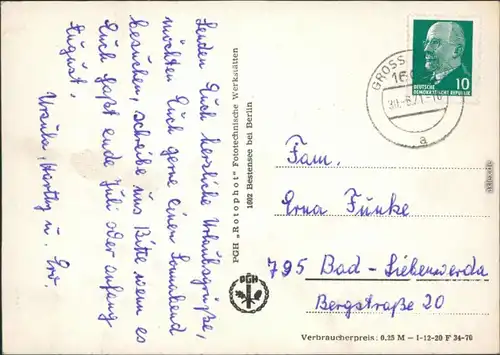 Senden Euch herzliche Urlaubsgrüße,
möchten Euch gerne einen Sonnabend
besuchen, schreibe uns Bitte wenn es
Euch paßt ende Juli oder anfang
August.
Ursula, u.
PGH „Rotophot" Fototechnische Werkstätten
1602 Bestensee bei Berlin
PGH
GROSS
DEUTSCHE
DEMOKRATISCHE REPUBLIK 10
a
Fam.
Erna Funke
795 Bad-Liebenwerda
Bergstraße 20
Verbraucherpreis: 0.25 M – I-12-20 F 34-70